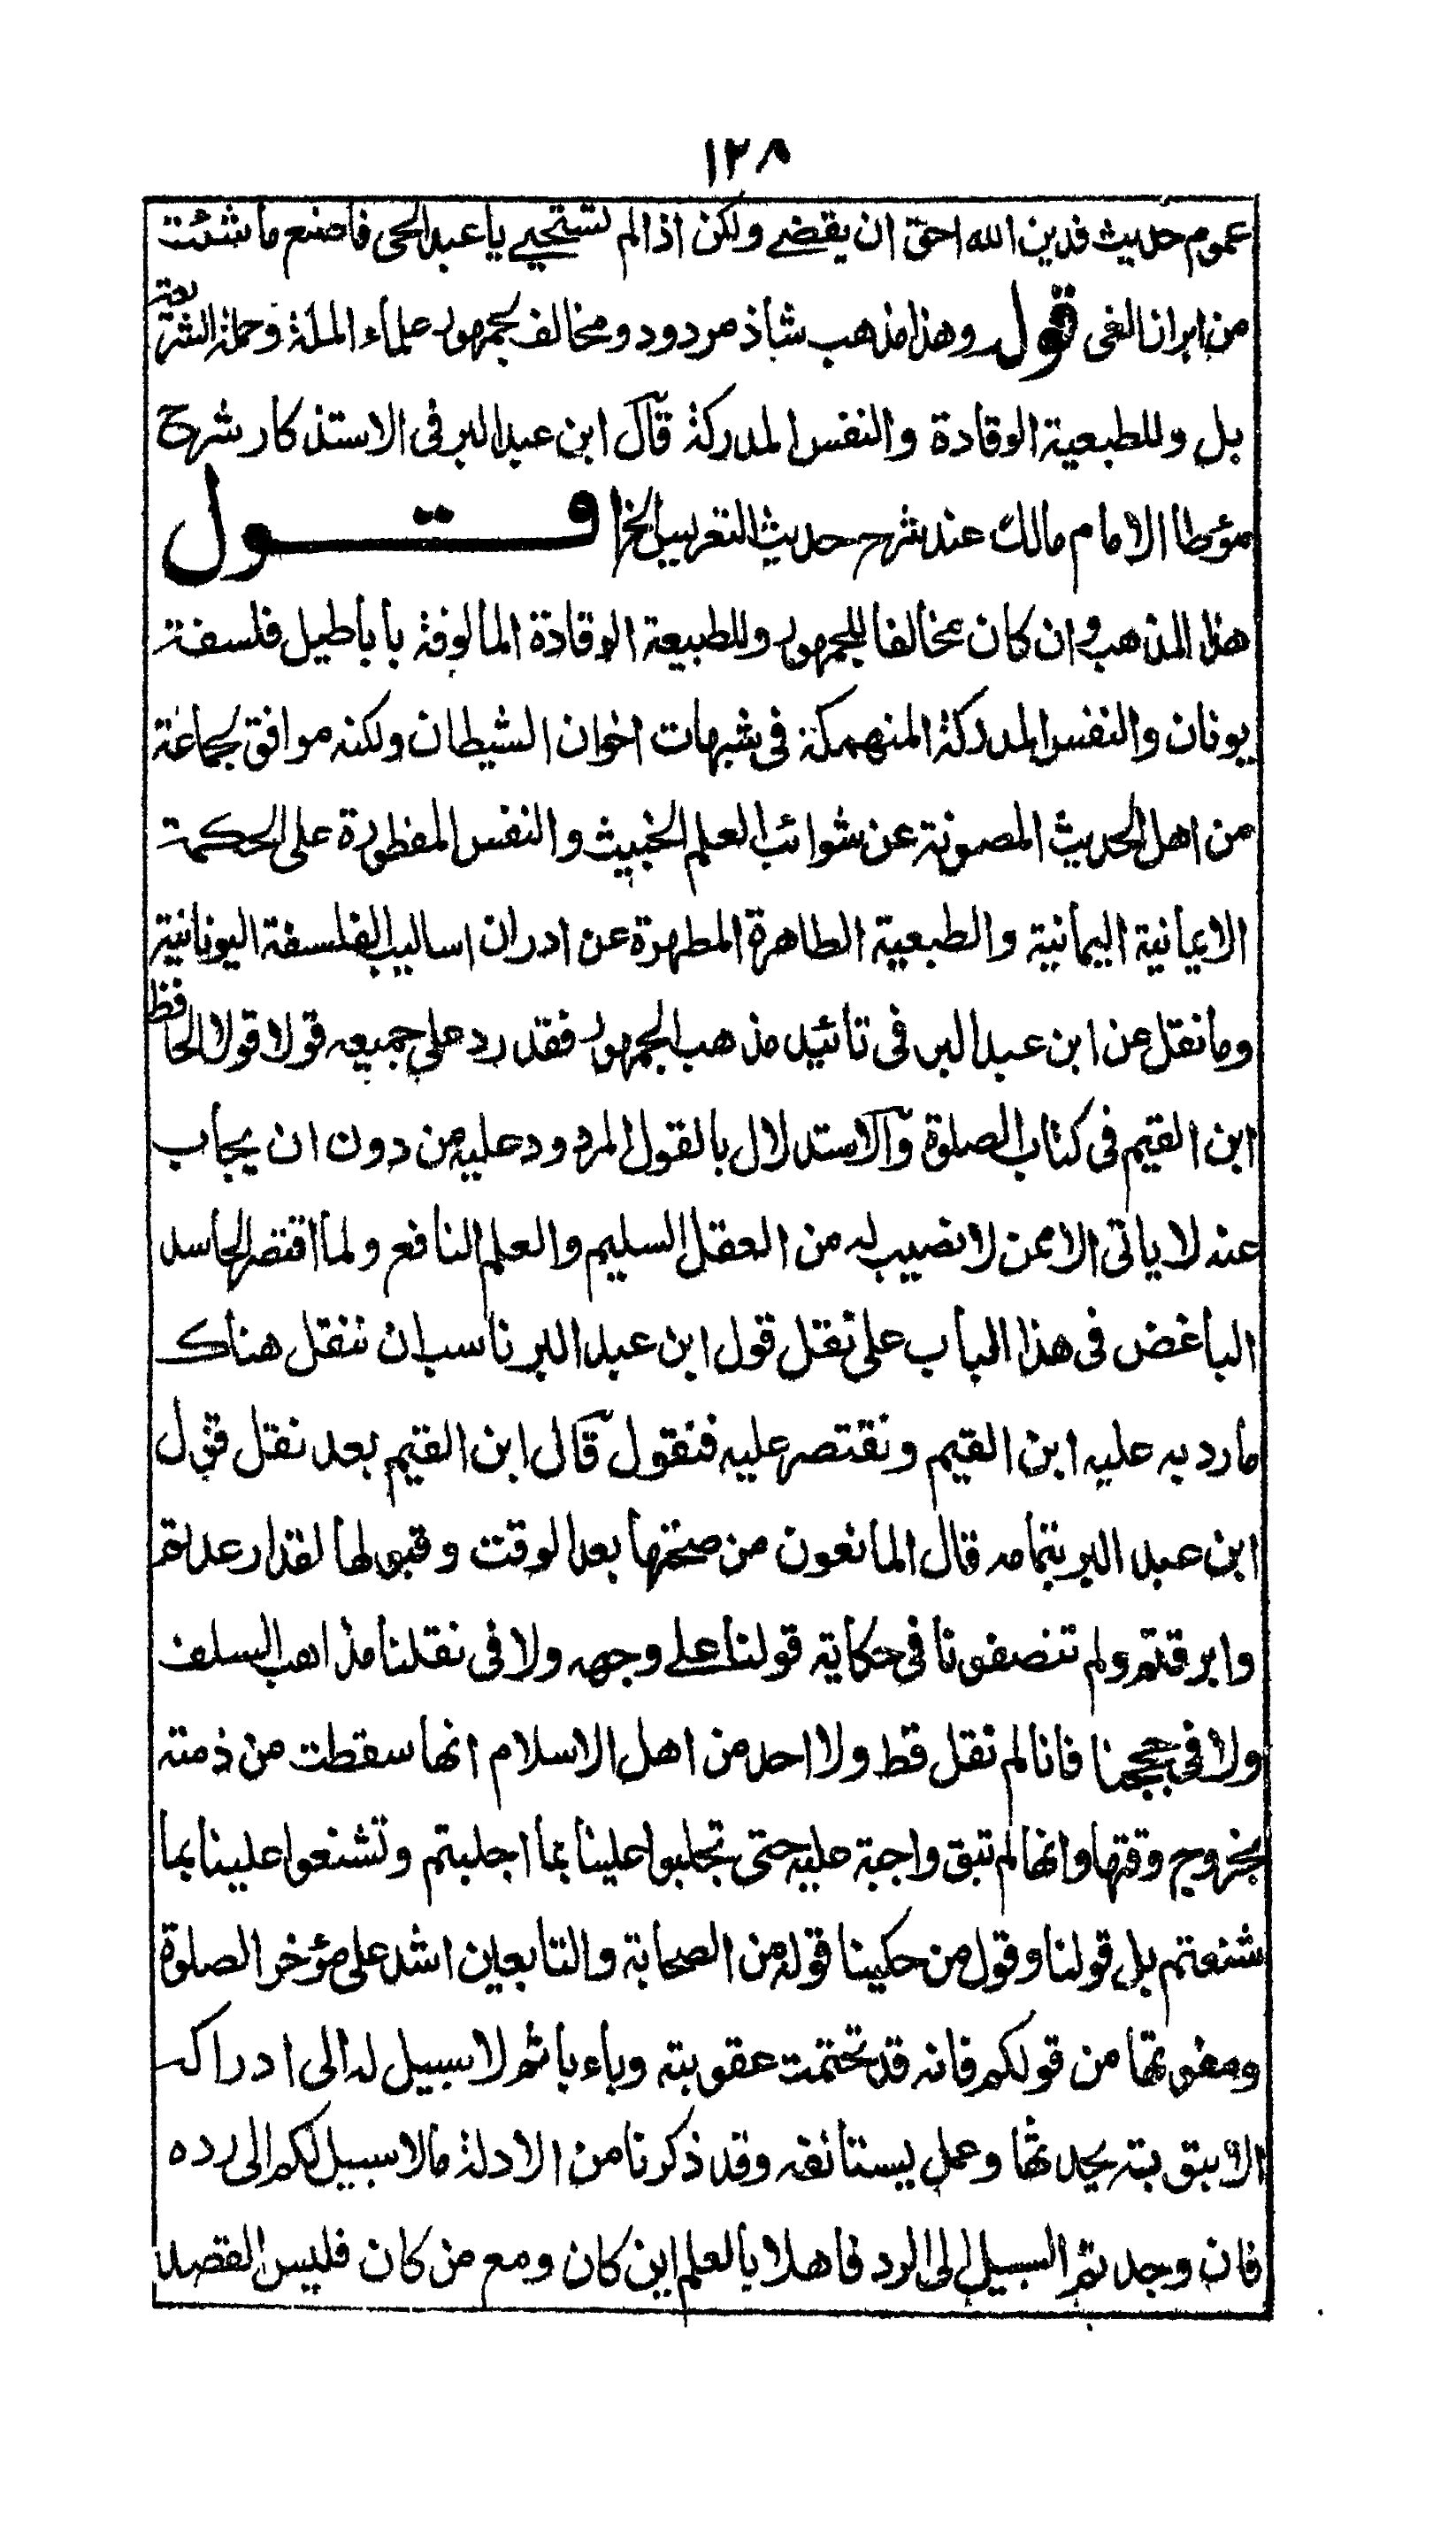 ١٢٨
عموم حديث فدين الله احق ان يقضے ولكن اذالم تستحيے يا عبد الحى فاصنع ما شئت
من ابراز الغى قول وهذا مذهب شاذ مردود ومخالف لجمهور علماء الملة وحملة الشريعة
بل وللطبعية الوقادة والنفس المدركة قال ابن عبد البر فى الاستذكار شرح
مؤطا الامام مالك عند شرح حديث التعريس الخ اقـــول
هذا المذهب وان كان مخالفا للجمهور وللطبيعة الوقادة المالوفة باباطيل فلسفة
يونان والنفس المدركة المنهمكة فى شبهات اخوان الشيطان ولكنه موافق لجماعة
من اهل الحديث المصونة عن شوائب العلم الخبيث والنفس المفطورة على الحكمة
الايمانية اليمانية والطبعية الطاهرة المطهرة عن ادران اساليب الفلسفة اليونانية
وما نقل عن ابن عبد البر فى تائيد مذهب الجمهور فقد رد على جميعه قولا قولا الحافظ
ابن القيم فى كتاب الصلوة والاستدلال بالقول المردود عليه من دون ان يجاب
عنه لا ياتى الا ممن لا نصيب له من العقل السليم والعلم النافع ولما اقتصر الحاسد
الباغض فى هذا الباب على نقل قول ابن عبد البر ناسب ان ننقل هناك
ما رد به عليه ابن القيم ونقتصر عليه فنقول قال ابن القيم بعد نقل قول
ابن عبد البر بتمامه قال المانعون من صحتها بعد الوقت وقبولها لقد ارعدتم
وابرقتم ولم تنصفونا فى حكاية قولنا علے وجهه ولا فى نقلنا مذاهب السلف
ولا فى حججنا فانا لم نقل قط ولا احد من اهل الاسلام انها سقطت من ذمته
بخروج وقتها وانها لم تبق واجبة عليه حتى تجلبوا علينا بما اجلبتم وتشنعوا علينا بما
شنعتم بل قولنا وقول من حكينا قوله من الصحابة والتابعين اشد على مؤخر الصلوة
ومفوتها من قولكم فانه قد تحتمت عقوبته وباء باثم لا سبيل له الى ادراكه
الا بتوبة يحدثها وعمل يستانفه وقد ذكرنا من الادلة ما لا سبيل لكم الى رده
فان وجدتم السبيل الى الرد فاهلا بالعلم اين كان ومع من كان فليس القصد